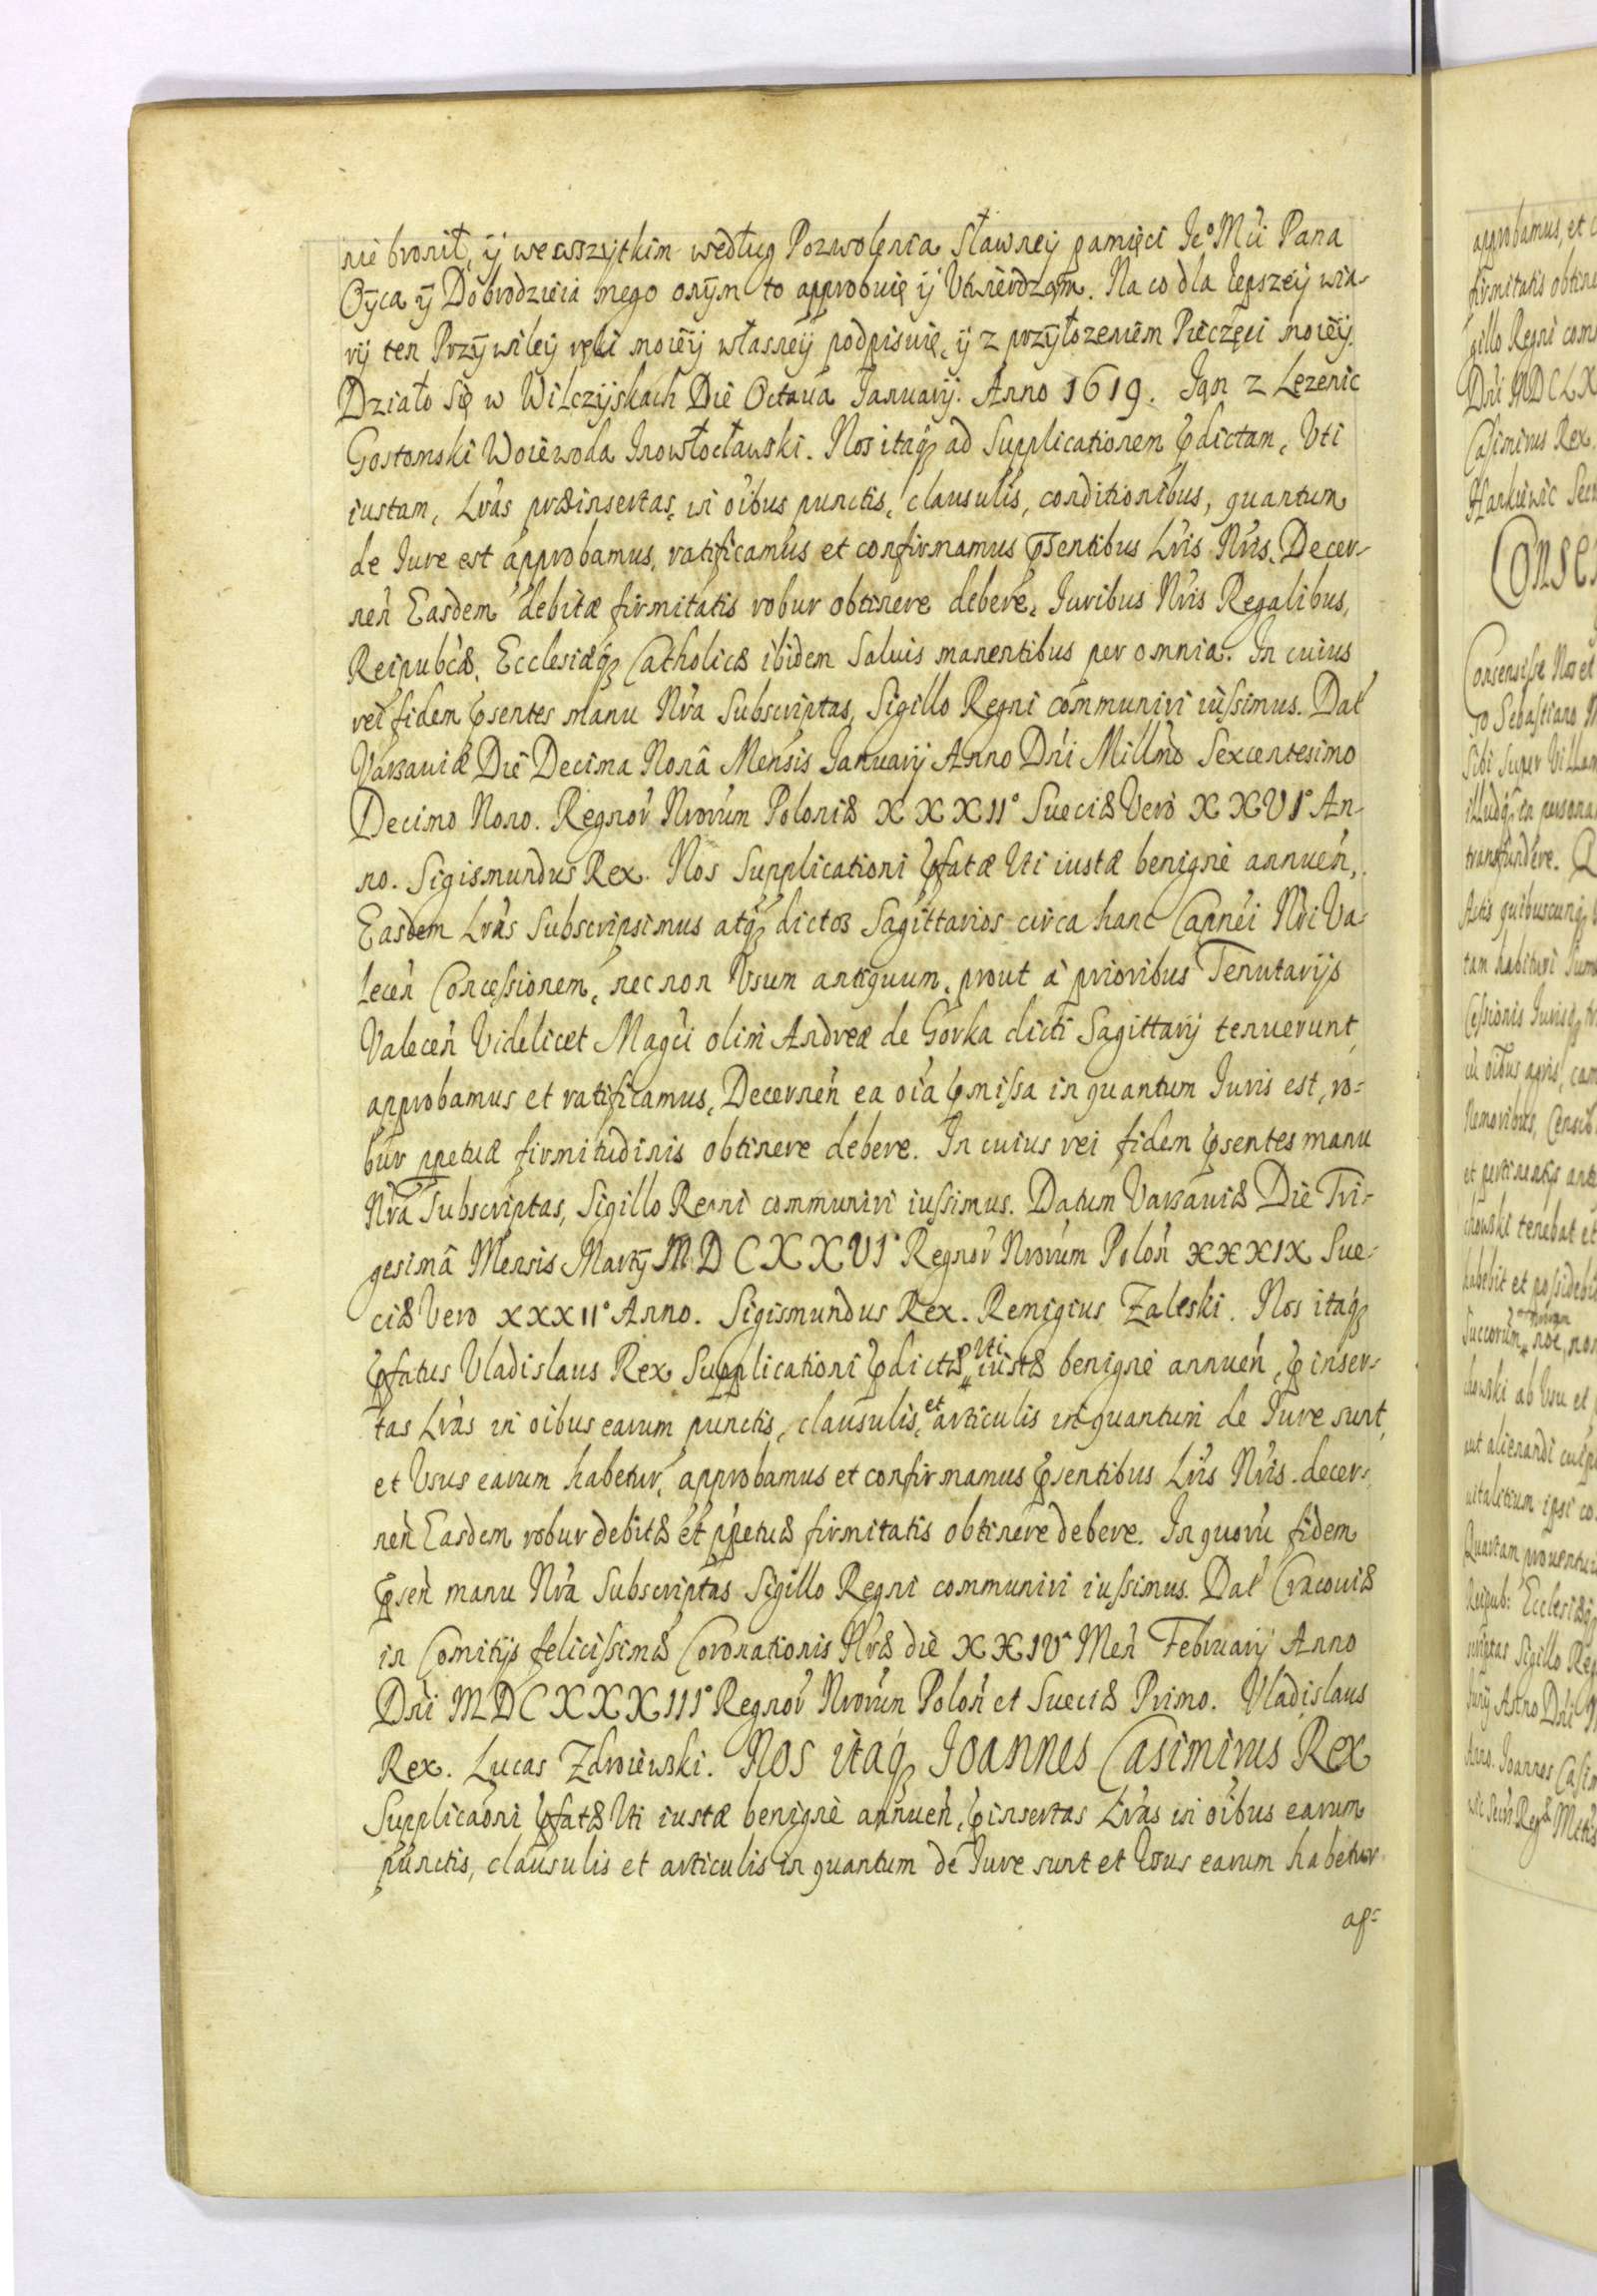 nie bronił, ÿ wewszytkim według Pozwolęnia Sławneÿ pamięci Ie° Mći Pana
Oÿca ÿ Dobrodzieia mego onÿm to approbuię ÿ Utwierdząm. Na co dla lepszeÿ wia-
rÿ ten Przÿwileÿ ręki moieÿ własneÿ podpisuię, ÿ z przÿłozeniem Pieczęci moieÿ.
Działo Się w Wilczÿskach Die Octaua Januarij. Anno 1619. Jąn z Lezenic
Gostomski Woiewoda Inowłocławski. Nos itaq3 ad Supplicationem pdictam, Uti
iustam, Lrãs præinsertas, in oibus punctis, clausulis, conditionibus, quantum
de Jure est approbamus, ratificamus et confirmamus psentibus Lris Nris. Decer-
neñ Easdem debitæ firmitatis robur obtinere debere, Juribus Nris Regalibus,
Reipubcæ, Ecclesiæq3 Catholicæ ibidem Saluis manentibus per omnia. In cuius
rei fidem psentes manu Nra Subscriptas, Sigillo Regni communiri iussimus. Dat
Varsauiæ Die Decima Nonâ Mensis Januarij Anno Dñi Millmo Sexcentesimo
Decimo Nono. Regnor Nrorum Poloniæ XXXII° Sueciæ Vero XXVI° An-
no. Sigismundus Rex. Nos Supplicationi pfatæ Uti iustæ benigne annueñ,
Easdem Lras Subscripsimus atq3 dictos Sagittarios circa hanc Capnei Nri Va-
leceñ Concessionem, nec non Usum antiquum, prout à prioribus Tenutarijs
Valeceñ Videlicet Magci olim Andreæ de Gorka dicti Sagittarij tenuerunt,
approbamus et ratificamus, Decerneñ ea oia pmissa in quantum Juris est, ro=
bur ppetuæ firmitudinis obtinere debere. In cuius rei fidem psentes manu
Nra Subscriptas, Sigillo Regni communiri iussimus. Datum Varsauiæ Die Tri=
gesimâ Mensis Martÿ MDCXXVI° Regnor Nrorum Poloñ XXXIX Sue-
ciæ Vero XXXII° Anno. Sigismundus Rex. Remigius Zaleski. Nos itaq3
pfatus Vladislaus Rex Supplicationi pdictæ Uti iustæ benigne annueñ, pinser-
tas Lras in oibus earum punctis, clausulis, et articulis in quantum de Jure sunt,
et Usus earum habetur, approbamus et confirmamus psentibus Lris Nris. decer-
neñ Easdem robur debitæ et ppetuæ firmitatis obtinere debere. In quoru fidem
pseñ manu Nra Subscriptas Sigillo Regni communiri iussimus. Dat Cracouiæ
in Comitijs felicissimæ Coronationis Nræ die XXIV Meñ Februarij Anno
Dñi MDCXXXIII° Regnor Nrorum Poloñ et Sueciæ Primo. Vladislaus
Rex. Lucas Zdroiewski. Nos itaq3 Joannes Casimirus Rex
Supplicaoni pfatæ Uti iustæ benigne annueñ, pinsertas Lras in oibus earum
punctis, clausulis et articulis in quantum de Jure sunt et Usus earum habetur
ap=
approbamus, et
firmitatis
gillo Regni
Casimirus Rex
Consensisse Nos et
Sebastiano
Sibi Super
transfundere.
Actis quibuscunq3
tam habituri
in oibus agris,
Nemoribus,
chowski tenebat et
chowski ab Usu et
aut alienandi
Quartam
Reipub: Ecclesiæq3
Sigillo Reg
Anno Dñi
Anno. Joannes